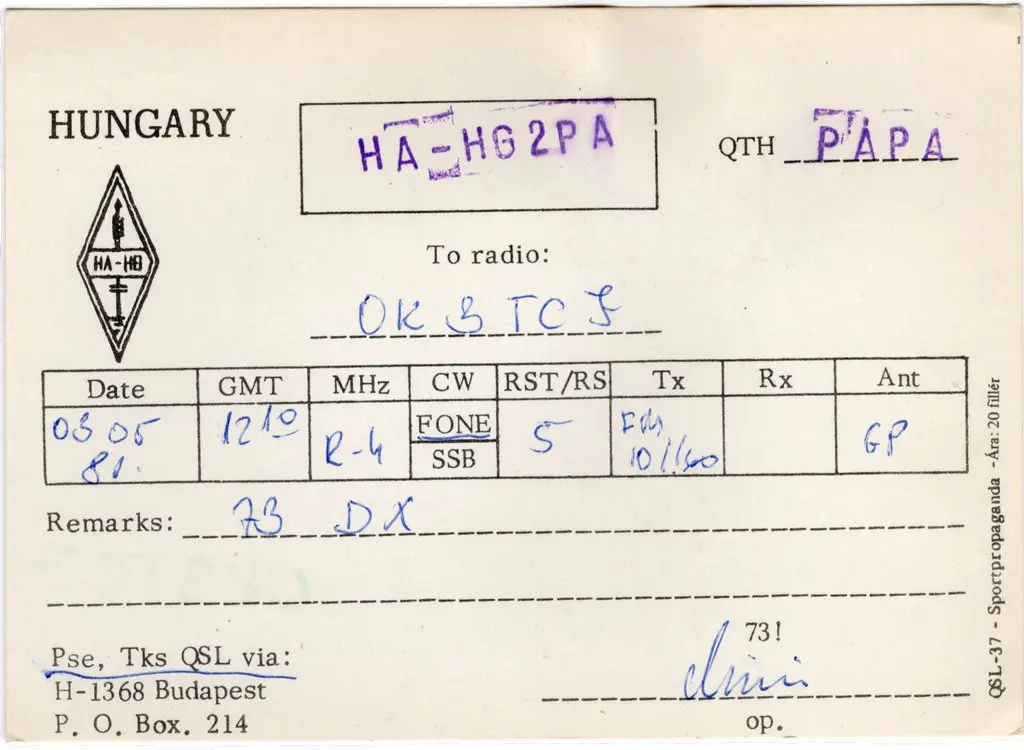 HUNGARY
HA-HG2PA
QTH PÁPA
HA-HG
To radio:
OK3TCJ
Date GMT MHz CW RST/RS Tx Rx Ant
03 05 81. 12 10 R-4 FONE 5 GP
SSB
Remarks: 73 DX
Pse, Tks QSL via:
H-1368 Budapest
P. O. Box. 214
73!
op.
QSL-37 - Sportpropaganda - Ára: 20 fillér